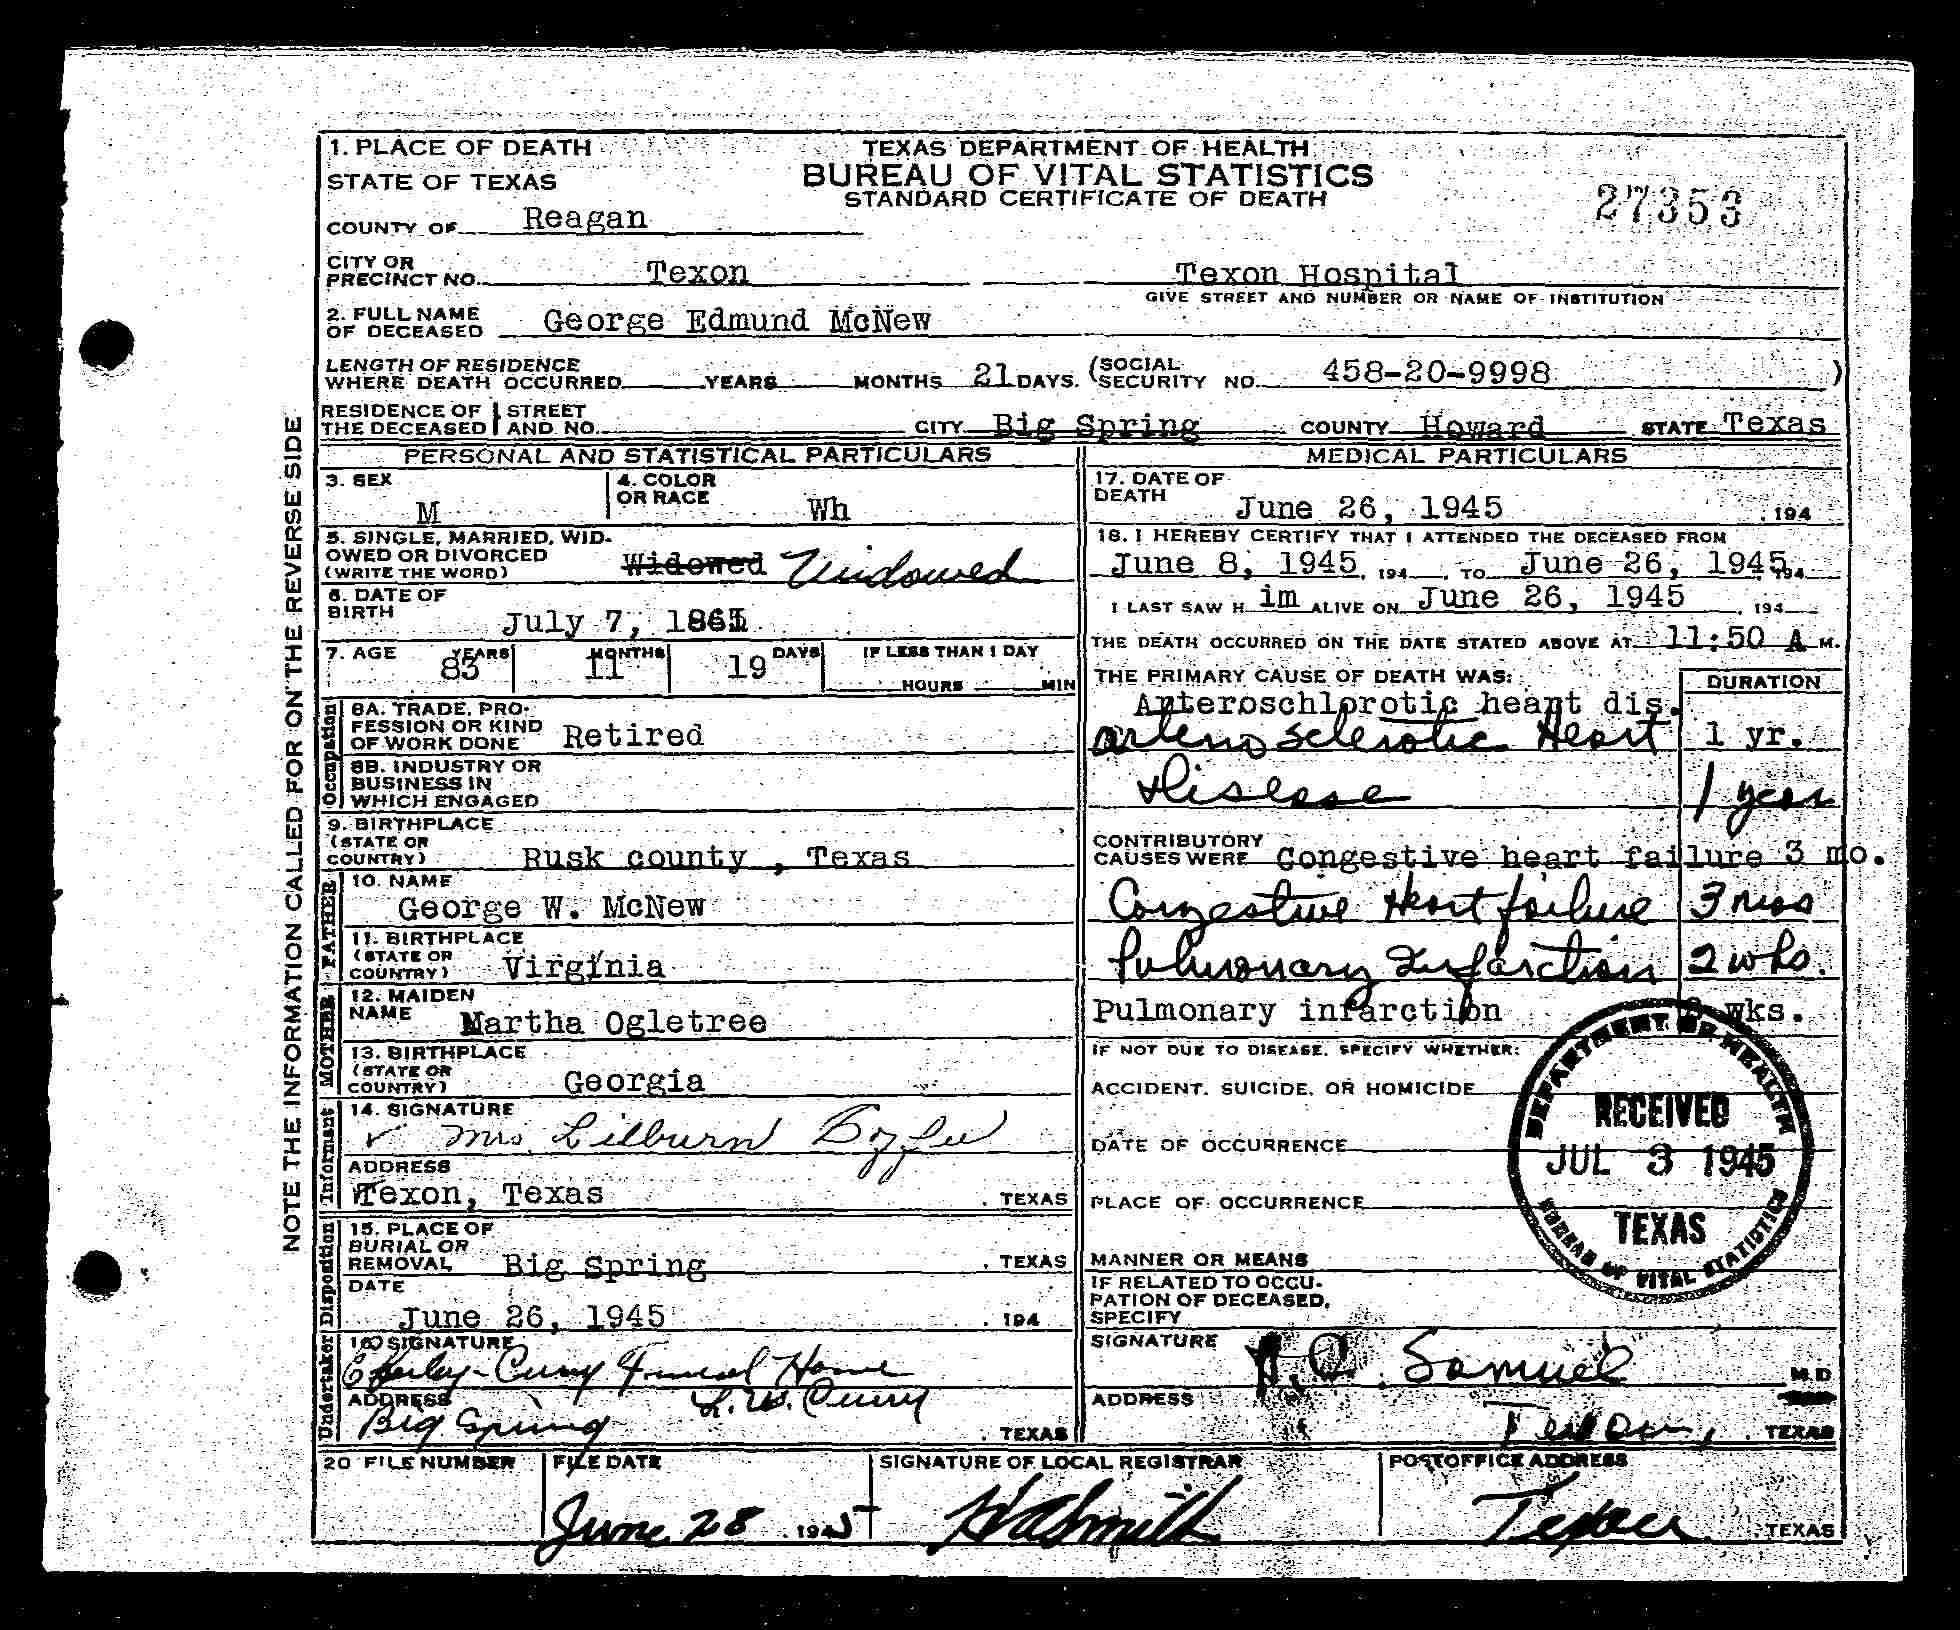 NOTE THE INFORMATION CALLED FOR ON THE REVERSE SIDE
1. PLACE OF DEATH
STATE OF TEXAS
COUNTY OF Reagan
TEXAS DEPARTMENT OF HEALTH
BUREAU OF VITAL STATISTICS
STANDARD CERTIFICATE OF DEATH
27353
CITY OR
PRECINCT NO. Texon Texon Hospital
GIVE STREET AND NUMBER OR NAME OF INSTITUTION
2. FULL NAME
OF DECEASED George Edmund McNew
LENGTH OF RESIDENCE
WHERE DEATH OCCURRED YEARS MONTHS 21 DAYS. (SOCIAL
SECURITY NO. 458-20-9998 )
RESIDENCE OF
THE DECEASED
STREET
AND NO. CITY Big Spring COUNTY Howard STATE Texas
PERSONAL AND STATISTICAL PARTICULARS
3. SEX
M
4. COLOR
OR RACE Wh
5. SINGLE, MARRIED, WID-
OWED OR DIVORCED
(WRITE THE WORD) Widowed Widowed
6. DATE OF
BIRTH July 7, 1861
7. AGE 83 YEARS 11 MONTHS 19 DAYS IF LESS THAN 1 DAY
HOURS MIN
Occupation
8A. TRADE, PRO-
FESSION OR KIND
OF WORK DONE Retired
8B. INDUSTRY OR
BUSINESS IN
WHICH ENGAGED
9. BIRTHPLACE
(STATE OR
COUNTRY) Rusk county , Texas
FATHER
10. NAME
George W. McNew
11. BIRTHPLACE
(STATE OR
COUNTRY) Virginia
MOTHER
12. MAIDEN
NAME Martha Ogletree
13. BIRTHPLACE
(STATE OR
COUNTRY) Georgia
Informant
14. SIGNATURE
Mrs. Lilburn
ADDRESS
Texon, Texas . TEXAS
Disposition
15. PLACE OF
BURIAL OR
REMOVAL Big Spring . TEXAS
DATE
June 26, 1945 . 194
Undertaker
16 SIGNATURE
Eberley-Curry Funeral Home
ADDRESS L. W. Curry
Big Spring . TEXAS
MEDICAL PARTICULARS
17. DATE OF
DEATH June 26, 1945 , 194
18. I HEREBY CERTIFY THAT I ATTENDED THE DECEASED FROM
June 8, 1945, 194 , TO June 26, 1945, 194
I LAST SAW H im ALIVE ON June 26, 1945 , 194
THE DEATH OCCURRED ON THE DATE STATED ABOVE AT 11:50 A M.
THE PRIMARY CAUSE OF DEATH WAS: DURATION
Arteroschlorotic heart dis.
arterio sclerotic Heart 1 yr.
Disease 1 year
CONTRIBUTORY
CAUSES WERE Congestive heart failure 3 mo.
Congestive Heart failure 3 mos
Pulmonary Infarction 2 wks.
Pulmonary infarction 2 wks.
IF NOT DUE TO DISEASE, SPECIFY WHETHER:
ACCIDENT, SUICIDE, OR HOMICIDE
DATE OF OCCURRENCE
PLACE OF OCCURRENCE
MANNER OR MEANS
IF RELATED TO OCCU-
PATION OF DECEASED,
SPECIFY
DEPARTMENT OF HEALTH
RECEIVED
JUL 3 1945
TEXAS
BUREAU OF VITAL STATISTICS
SIGNATURE Samuel M.D
ADDRESS Texon, . TEXAS
20 FILE NUMBER
FILE DATE
June 28 , 1945
SIGNATURE OF LOCAL REGISTRAR
H A Smith
POSTOFFICE ADDRESS
Texon TEXAS